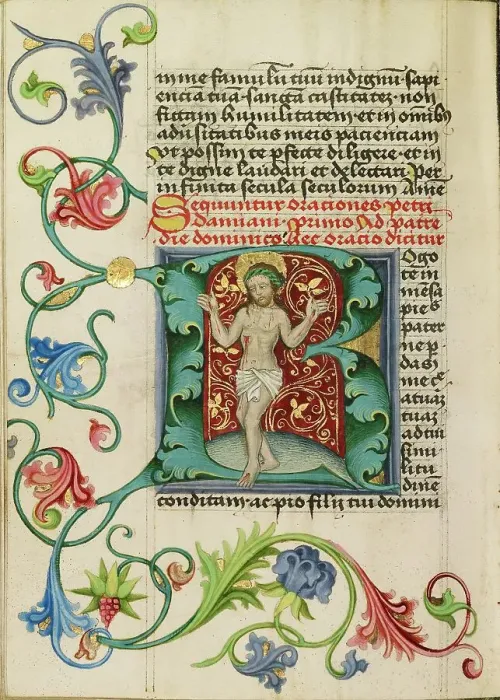 in me famulū tuū indignū· sapi
encia tuā· sanctā castitatez· non
fictam humilitatem· et in omibꝫ
adũsitatibus meis pacienciam
vt possim te p̃fecte diligere· et in
te digne laudari et delectari Per
infinita secula seculorum Amē
Sequuntur orationes petri
damiani· primo Ad patrē
die dominico· hec oratio dicitur
Rogo
te in
mēsā
pies
pater
ne p̱
das
me cȝ
atuaȝ
tuaȝ
ad tui
simi
litu
dinē
conditam· ac pro filii tui domini